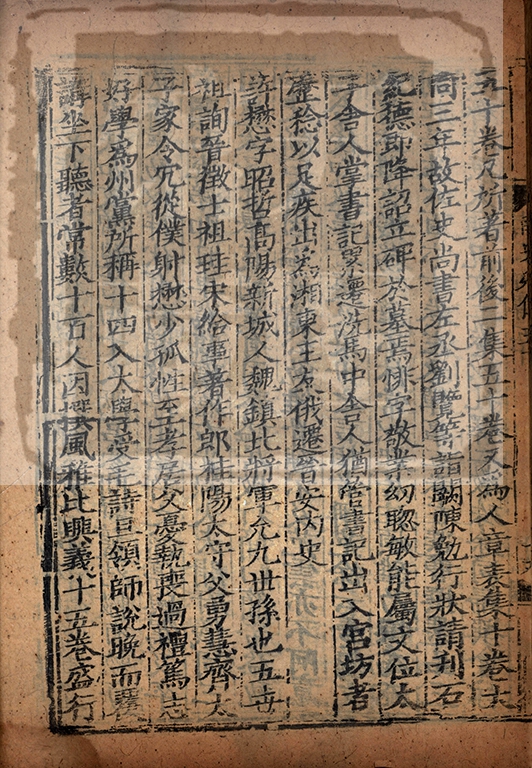 五十卷凡所著前後二集五十卷又爲人章表集十卷大
同三年故佐史尚書左丞劉覽等詣闕陳勉行狀請刊石
紀德即降詔立碑於墓焉悱字敬業幼聦敏能屬文位太
子舍人掌書記累遷洗馬中舍人猶管書記出入宮坊者
歷稔以足疾出爲湘東王友俄遷晉安内史
許懋字昭哲髙陽新城人魏鎮北將軍允九世孫也五世
祖詢晉徵士祖珪宋給事著作郎桂陽太守父勇慧齊太
子家令冗從僕射懋少孤性至孝居父憂執喪過禮篤志
好學爲州黨所稱十四入太學受毛詩旦領師說晚而覆
講坐下聽者常數十百人因撰風雅比興義十五卷盛行